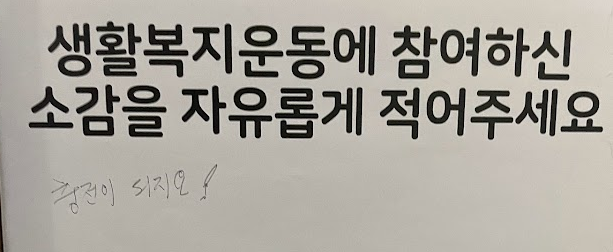 생활복지운동에 참여하신
소감을 자유롭게 적어주세요
충전이 되지요!